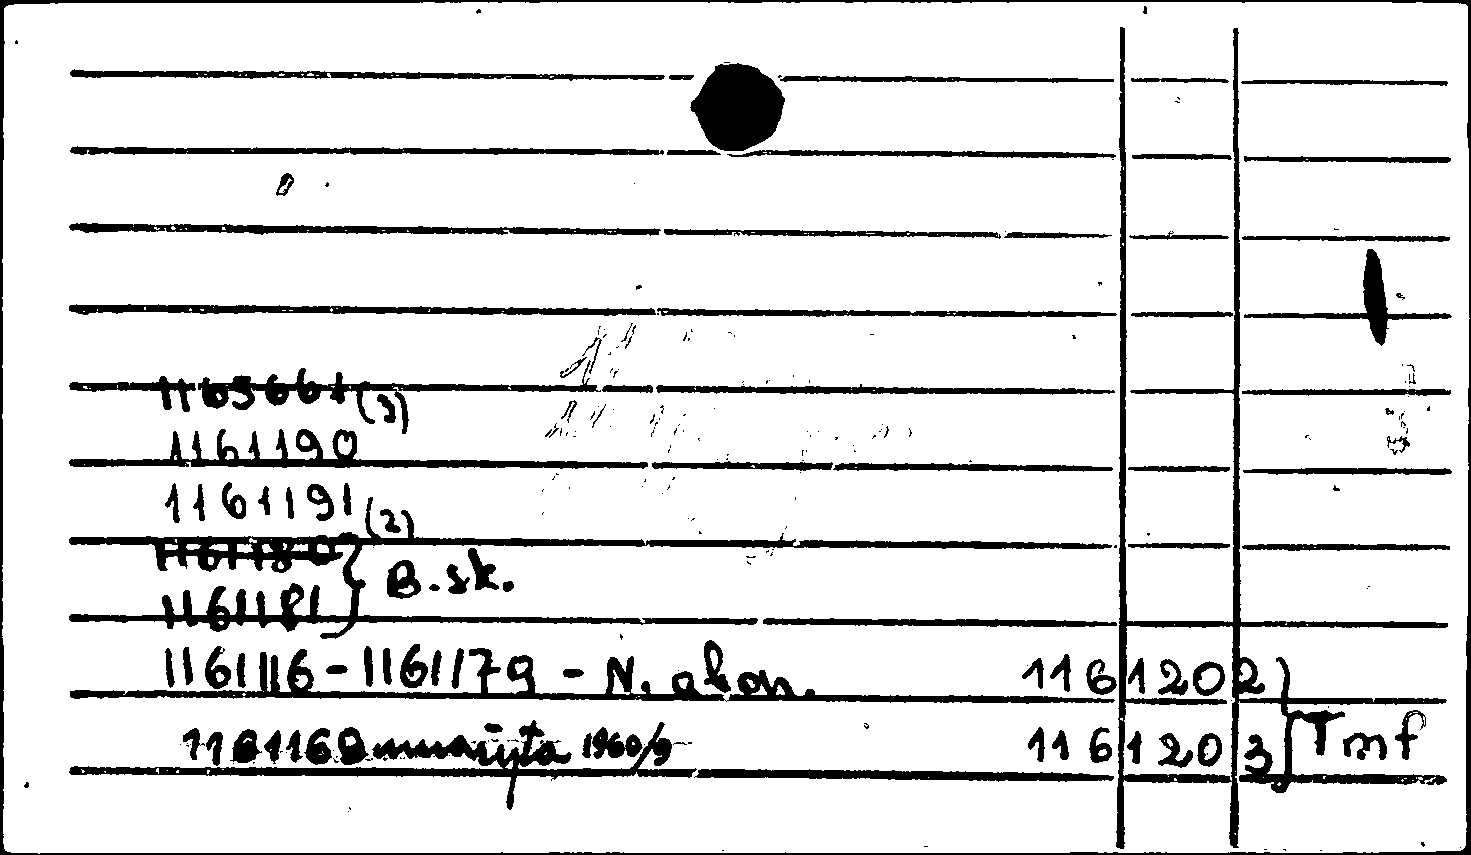 1163661 (3)
1161190
1161191 (2)
1161180 } B.sk.
1161181
1161116-1161179 - N. abon. 1161202 }
1161168 nurašyta 1960/9 1161203 } Tmf